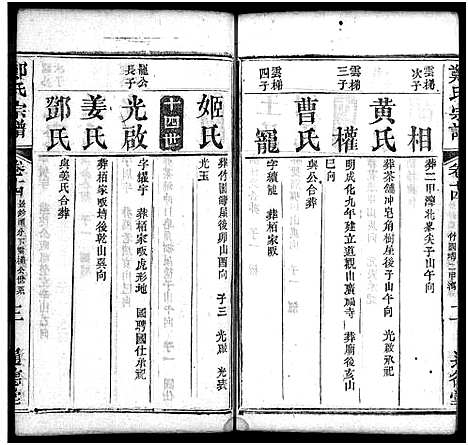 鄭氏宗譜
卷十四
二
雲梯次子
相
葬二甲潭北峯尖子山午向
黃氏
葬茶舖冲皂角樹屋後子山午向 光啟承祀
雲梯三子
權
明成化九年建立道觀山廣福寺 葬廟後亥山巳向
曹氏
與公合葬
雲梯四子
寵
字績龍 葬栢家畈
姬氏
葬竹園塆屋後卯山酉向 子三 光啟 光裁 光玉
十四世
寵公長子
光啟
字纘宇 葬栢家畈虎形地 國聘國仕承祀
姜氏
葬栢家畈塆後乾山巽向
鄧氏
與姜氏合葬
鄭氏宗譜
卷十四
三